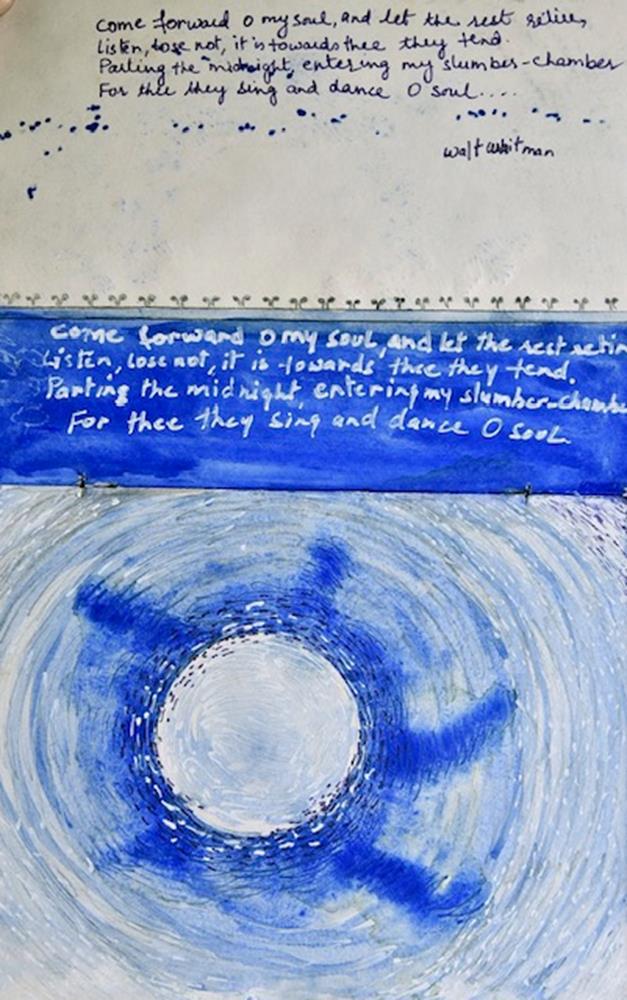 come forward O my soul, and let the rest retire,
Listen, lose not, it is towards thee they tend.
Parting the midnight, entering my slumber-chamber
For thee they sing and dance O soul....
walt whitman
come forward O my soul, and let the rest retir
Listen, lose not, it is towards thee they tend.
Parting the midnight, entering my slumber-chambe
For thee they sing and dance O soul.